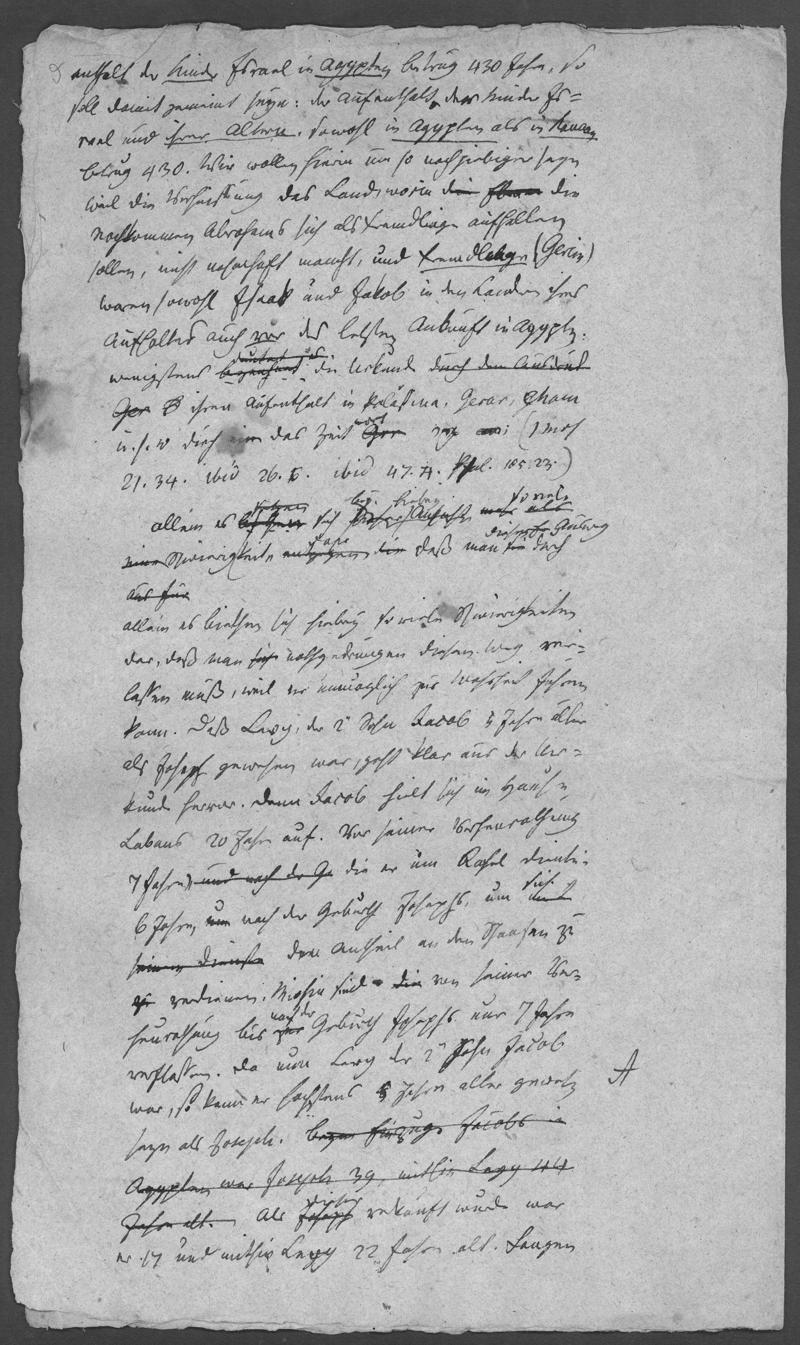 enthalt der Kinder Israel in Agypten betrug 430 Jahre, so
soll damit gemeint seyn: der Aufenthalt der Kinder Is=
rael und ihrer Altern, sowohl in Agypten als in Kanaan
betrug 430. Wir wollen hierin um so nachgiebiger seyn
weil die Verheissung des Lands worin die die
Nachkommen Abrahams sich als Fremdlinge aufhalten
sollen, nicht nahmhaft macht, und Fremdlinge (Gerim)
waren sowohl Isaak und Jakob in den Landen ihres
Aufhaltes auch vor der letzten Ankunft in Agypten.
wenigstens die Urkunde durch den Ausdruk
Ger ihren Aufenthalt in Palästina, Gerar, Cham
u. s. w durch das Zeit wort Ger (1 Mos
21. 34. ibid 26. ibid 47. 4. Psal. 105. 23.)
allein es sich so viele
eine Schwierigkeiten die daß man durch
aus für
allein es biethen sich hiebey so viele Schwierigkeiten
dar, daß man sich nothgedrungen diesen Weg ver=
lassen muß, weil er unmöglich zur Wahrheit führen
kann. Daß Levy, der 2te Sohn Jacob 5 Jahre älter
als Joseph gewesen war, geht klar aus der Ur=
kunde hervor. Denn Jacob hielt sich im Hause
Labans 20 Jahre auf. Vor seiner Verheurathung
7 Jahre, und nach der Ge die er um Rahel diente.
6 Jahre, um nach der Geburth Josephs, um sich
seinen Dienste den Antheil an den Schaafen zu
zu verdienen. Mithin sind die von seiner Ver=
heurathung bis nach der Geburth Josephs nur 7 Jahre
verflossen. Da nun Levy der 2te Sohn Jacob
war, so kann er höchstens 5 Jahre älter gewesen A
seyn als Joseph. Beym Einzuge Jacobs in
Agypten war Joseph 39, mithin Levy 44
Jahre alt. Als dieser Joseph verkauft wurde war
er 17 und mithin Levy 22 Jahre alt. Laugen